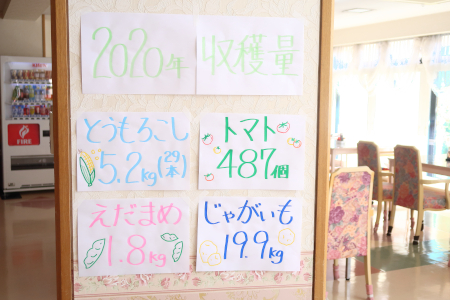 2020年 収穫量
とうもろこし
5.2kg(29本)
トマト
487個
えだまめ
1.8kg
じゃがいも
19.9kg
FIRE